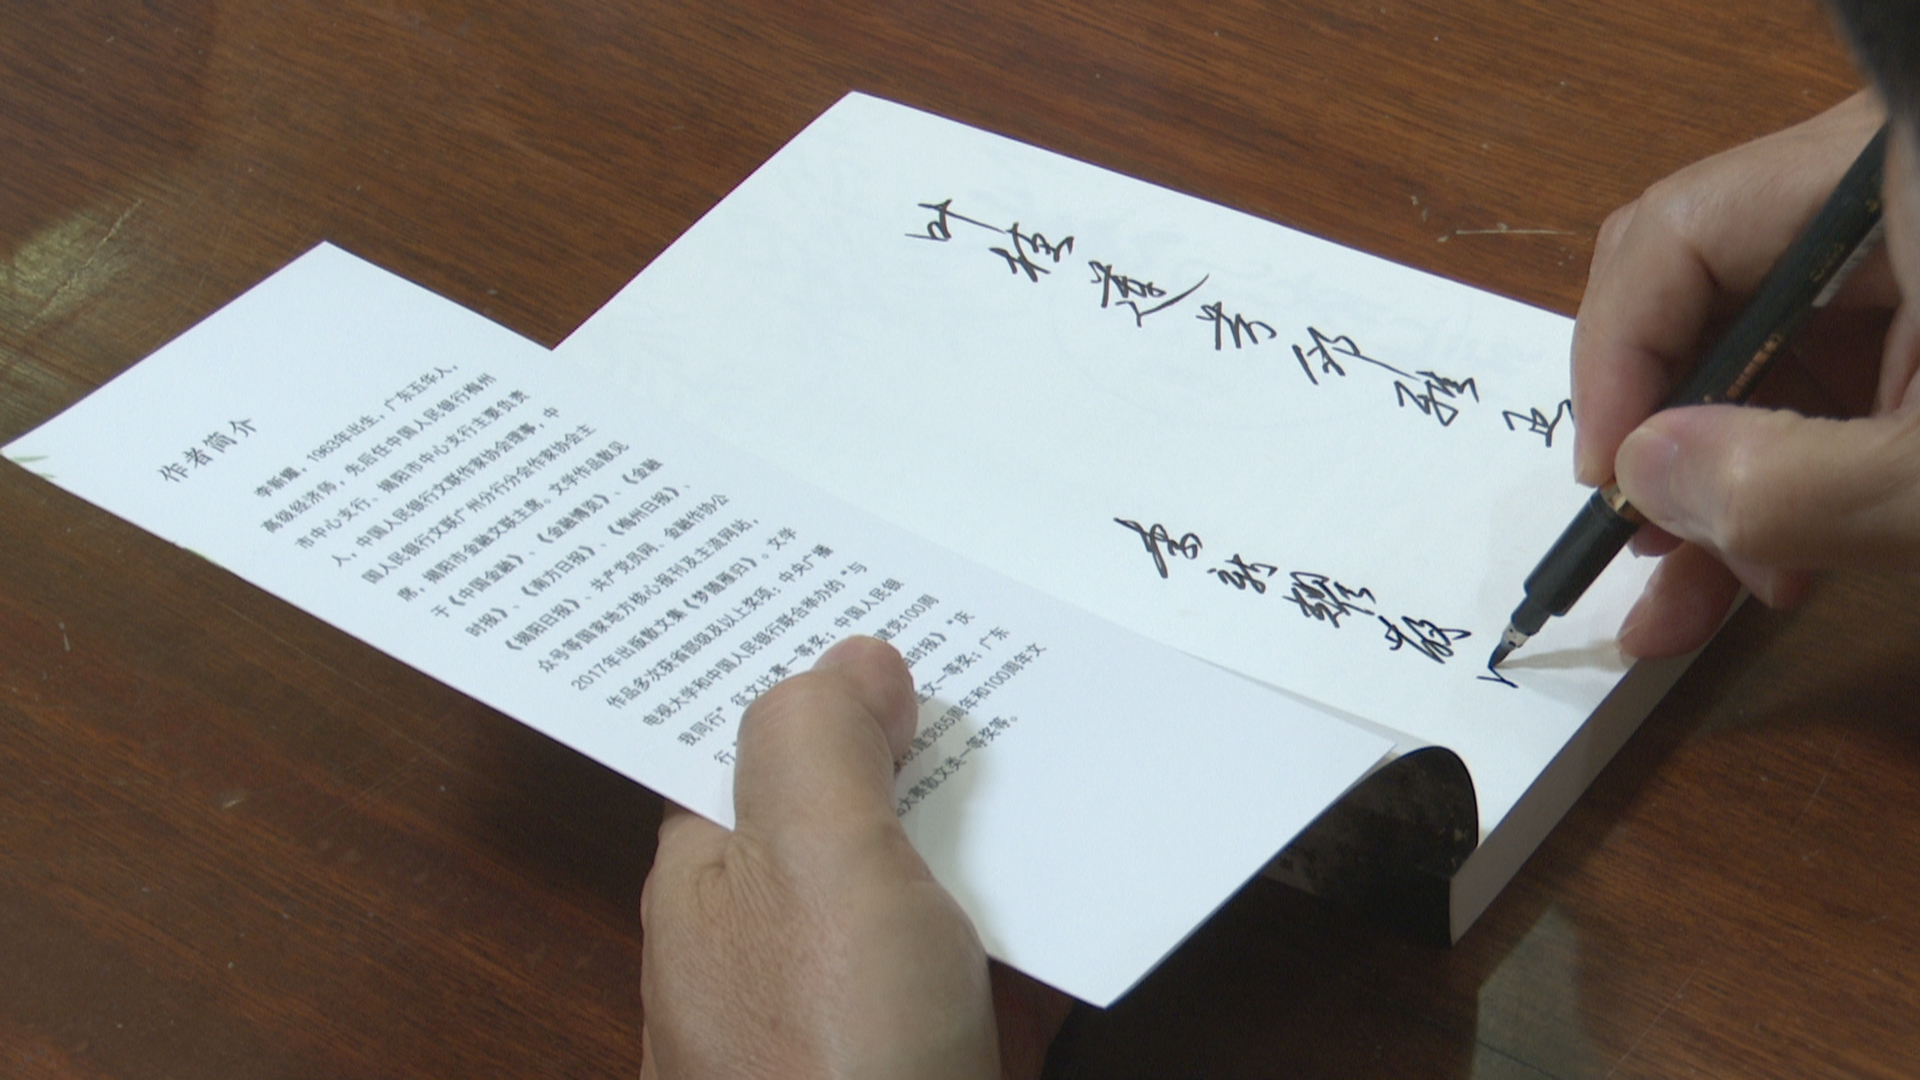 作者简介
李新耀，1963年出生，广东五华人，
高级经济师，先后任中国人民银行梅州
市中心支行、揭阳市中心支行主要负责
人，中国人民银行文联作家协会理事，中
国人民银行文联广州分行分会作家协会主
席，揭阳市金融文联主席。文学作品散见
于《中国金融》、《金融博览》、《金融
时报》、《南方日报》、《梅州日报》、
《揭阳日报》、共产党员网、金融作协公
众号等国家地方核心报刊及主流网站，
2017年出版散文集《梦随雁归》。文学
作品多次获省部级及以上奖项：中央广播
电视大学和中国人民银行联合举办的“与
我同行”征文比赛一等奖；中国人民银
行 建党100周
时报》“庆
文一等奖；广东
建党65周年和100周年文
大赛散文类一等奖等。
叶 芳 邱 正
李新耀